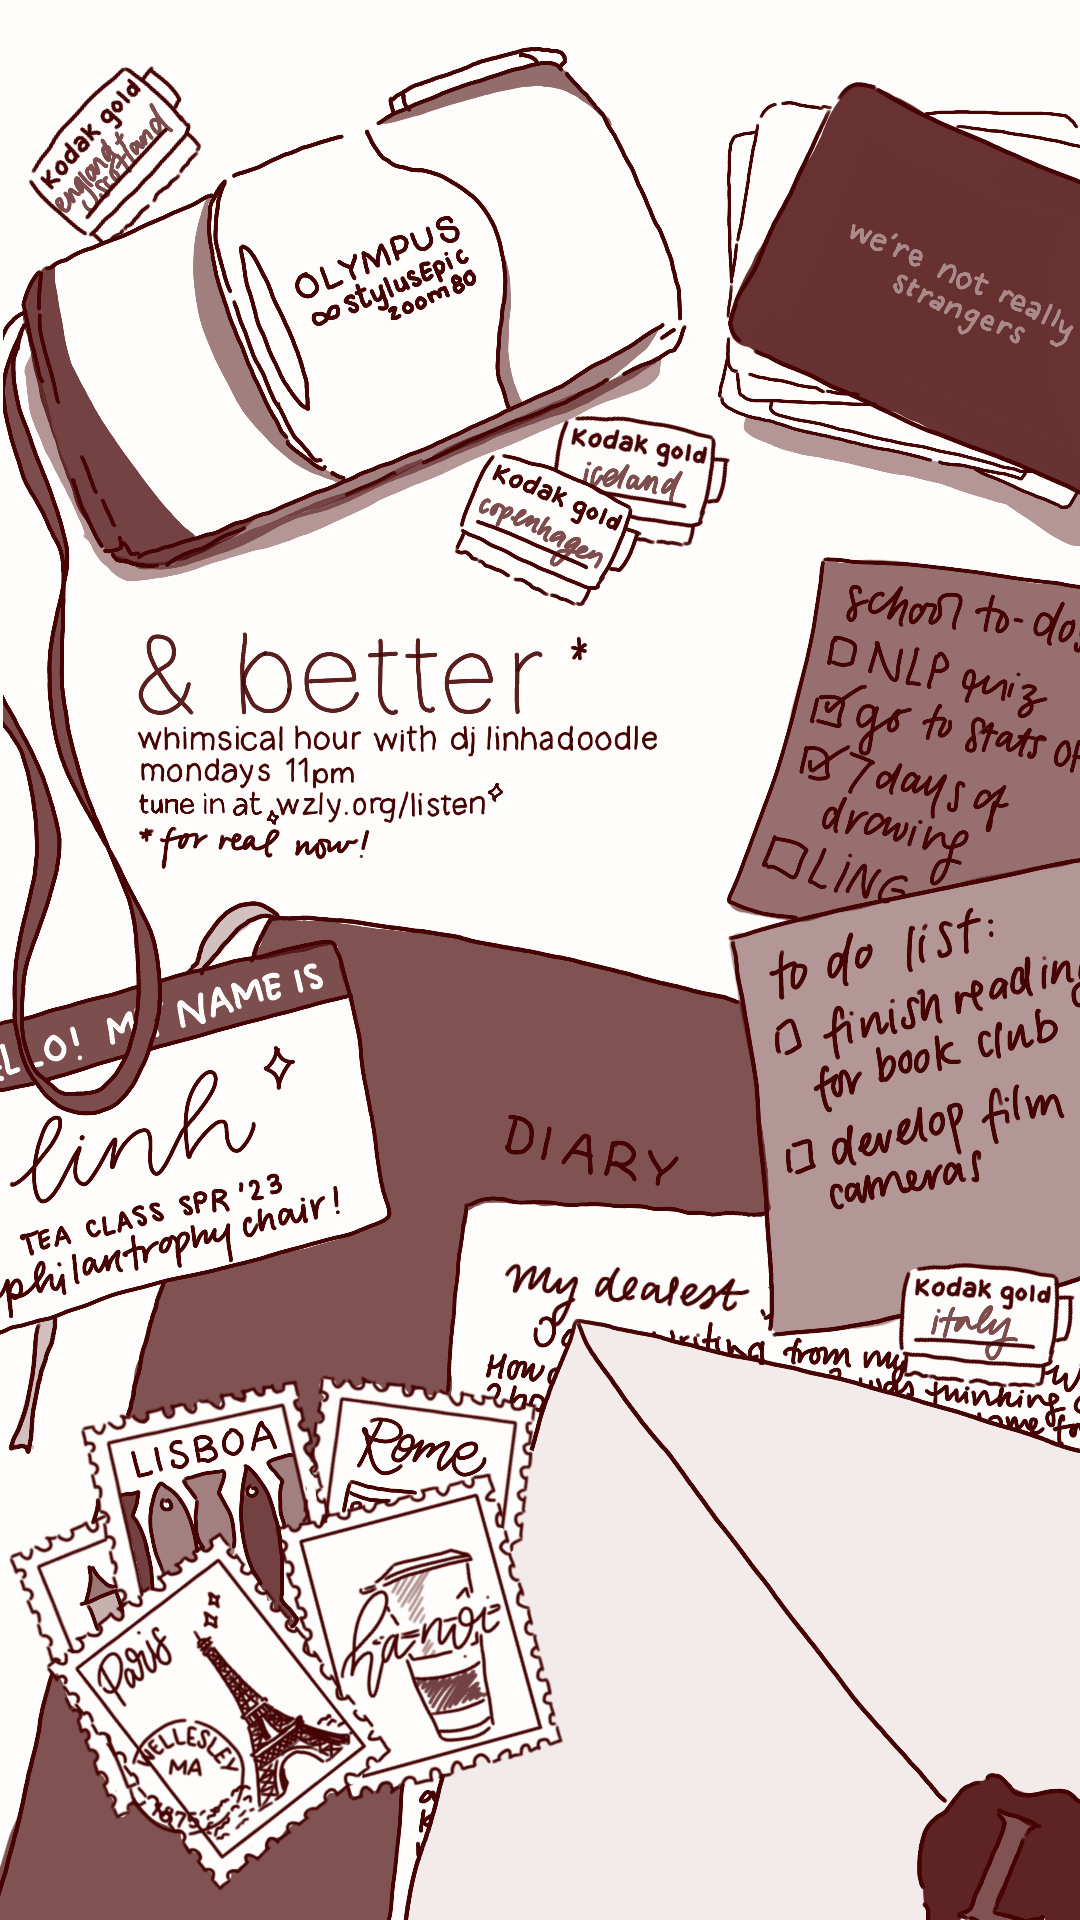 Kodak gold
england +
scotland
OLYMPUS
∞ stylusEpic
zoom 80
we're not really
strangers
Kodak gold
iceland
Kodak gold
copenhagen
& better *
whimsical hour with dj linhadoodle
mondays 11pm
tune in at wzly.org/listen
* for real now!
school to-dos
NLP quiz
go to stats of
7 days of
drawing
LING
to do list:
finish reading
for book club
develop film
cameras
LLO! MY NAME IS
linh
TEA CLASS SPR '23
philantrophy chair!
DIARY
my dearest
writing from my
How
was thinking
Kodak gold
italy
LISBOA
Rome
Paris
WELLESLEY
MA
1875
hanoi
L